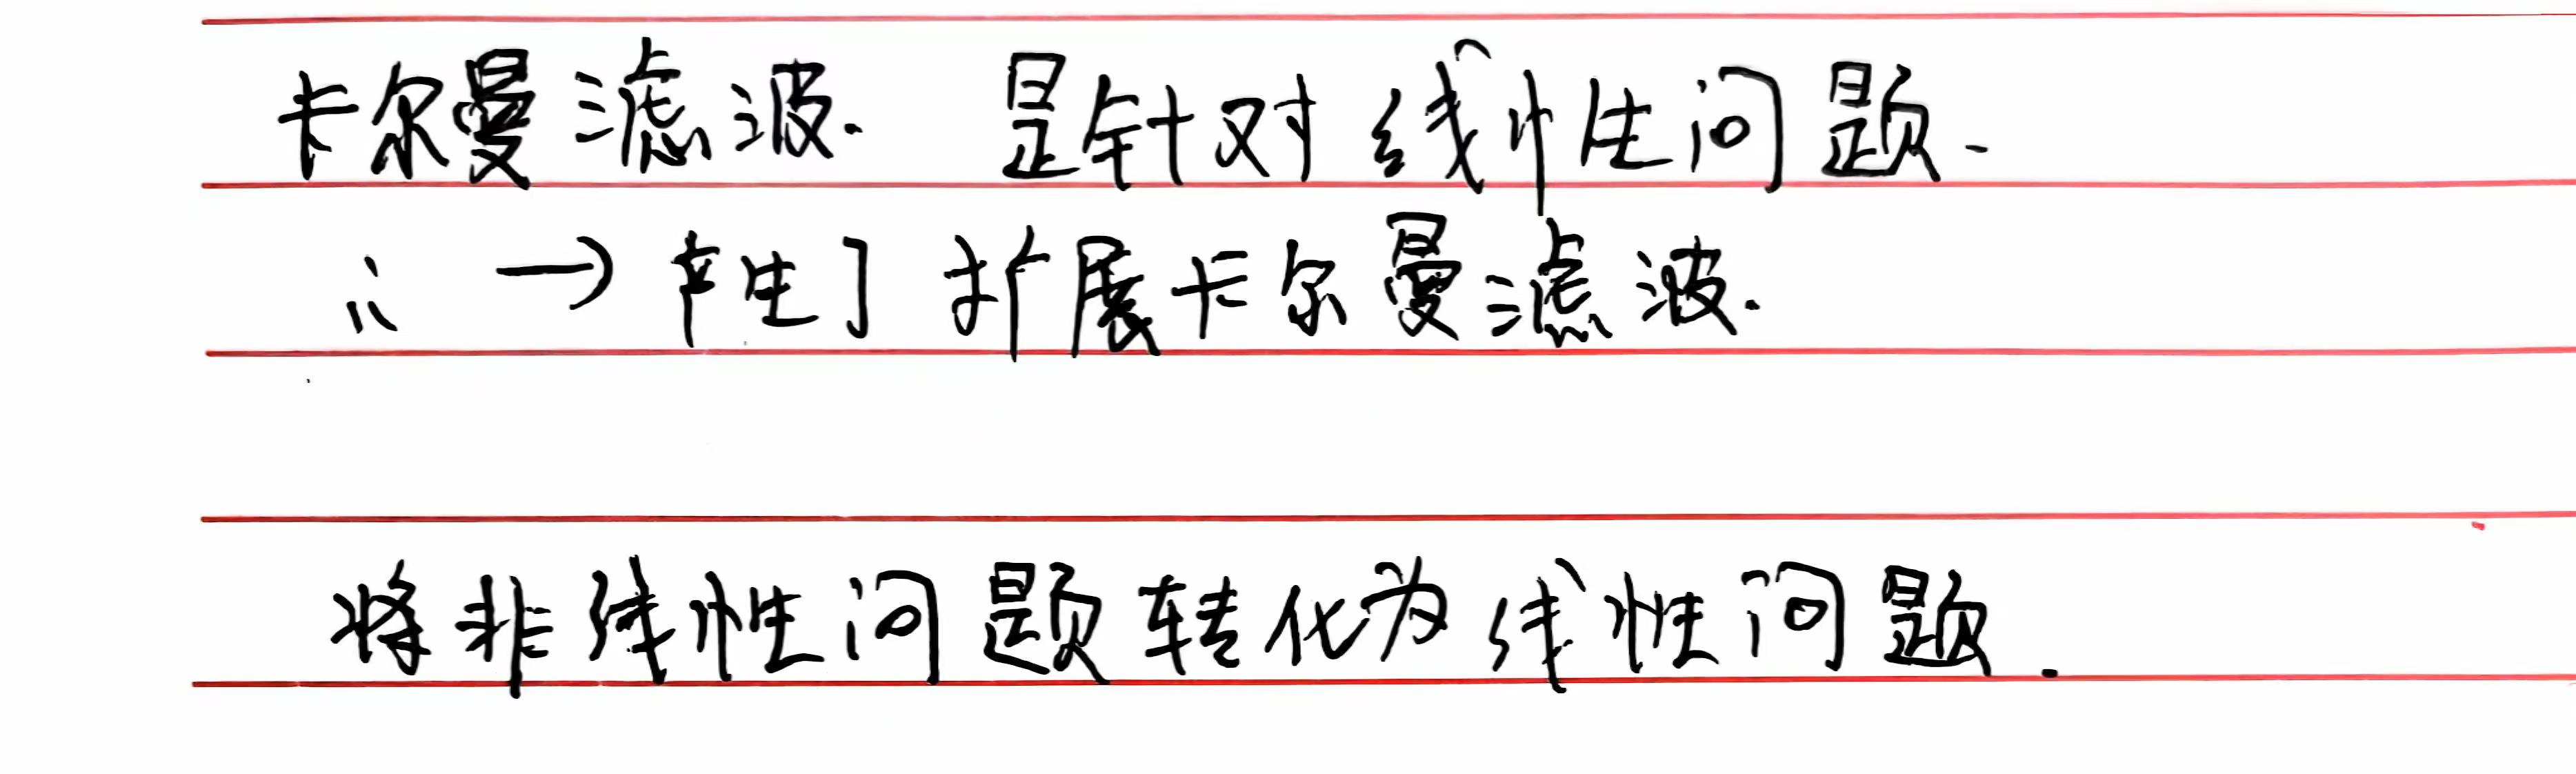 卡尔曼滤波. 是针对线性问题.
∴ → 产生了扩展卡尔曼滤波.
将非线性问题转化为线性问题.